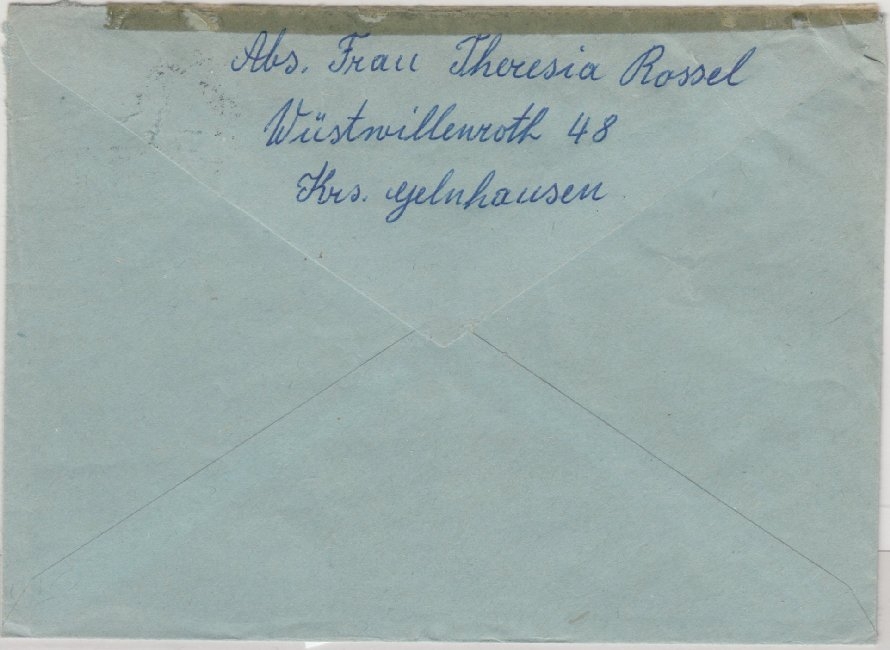 Abs. Frau Theresia Rossel
Wüstwillenroth 48
Krs. Gelnhausen